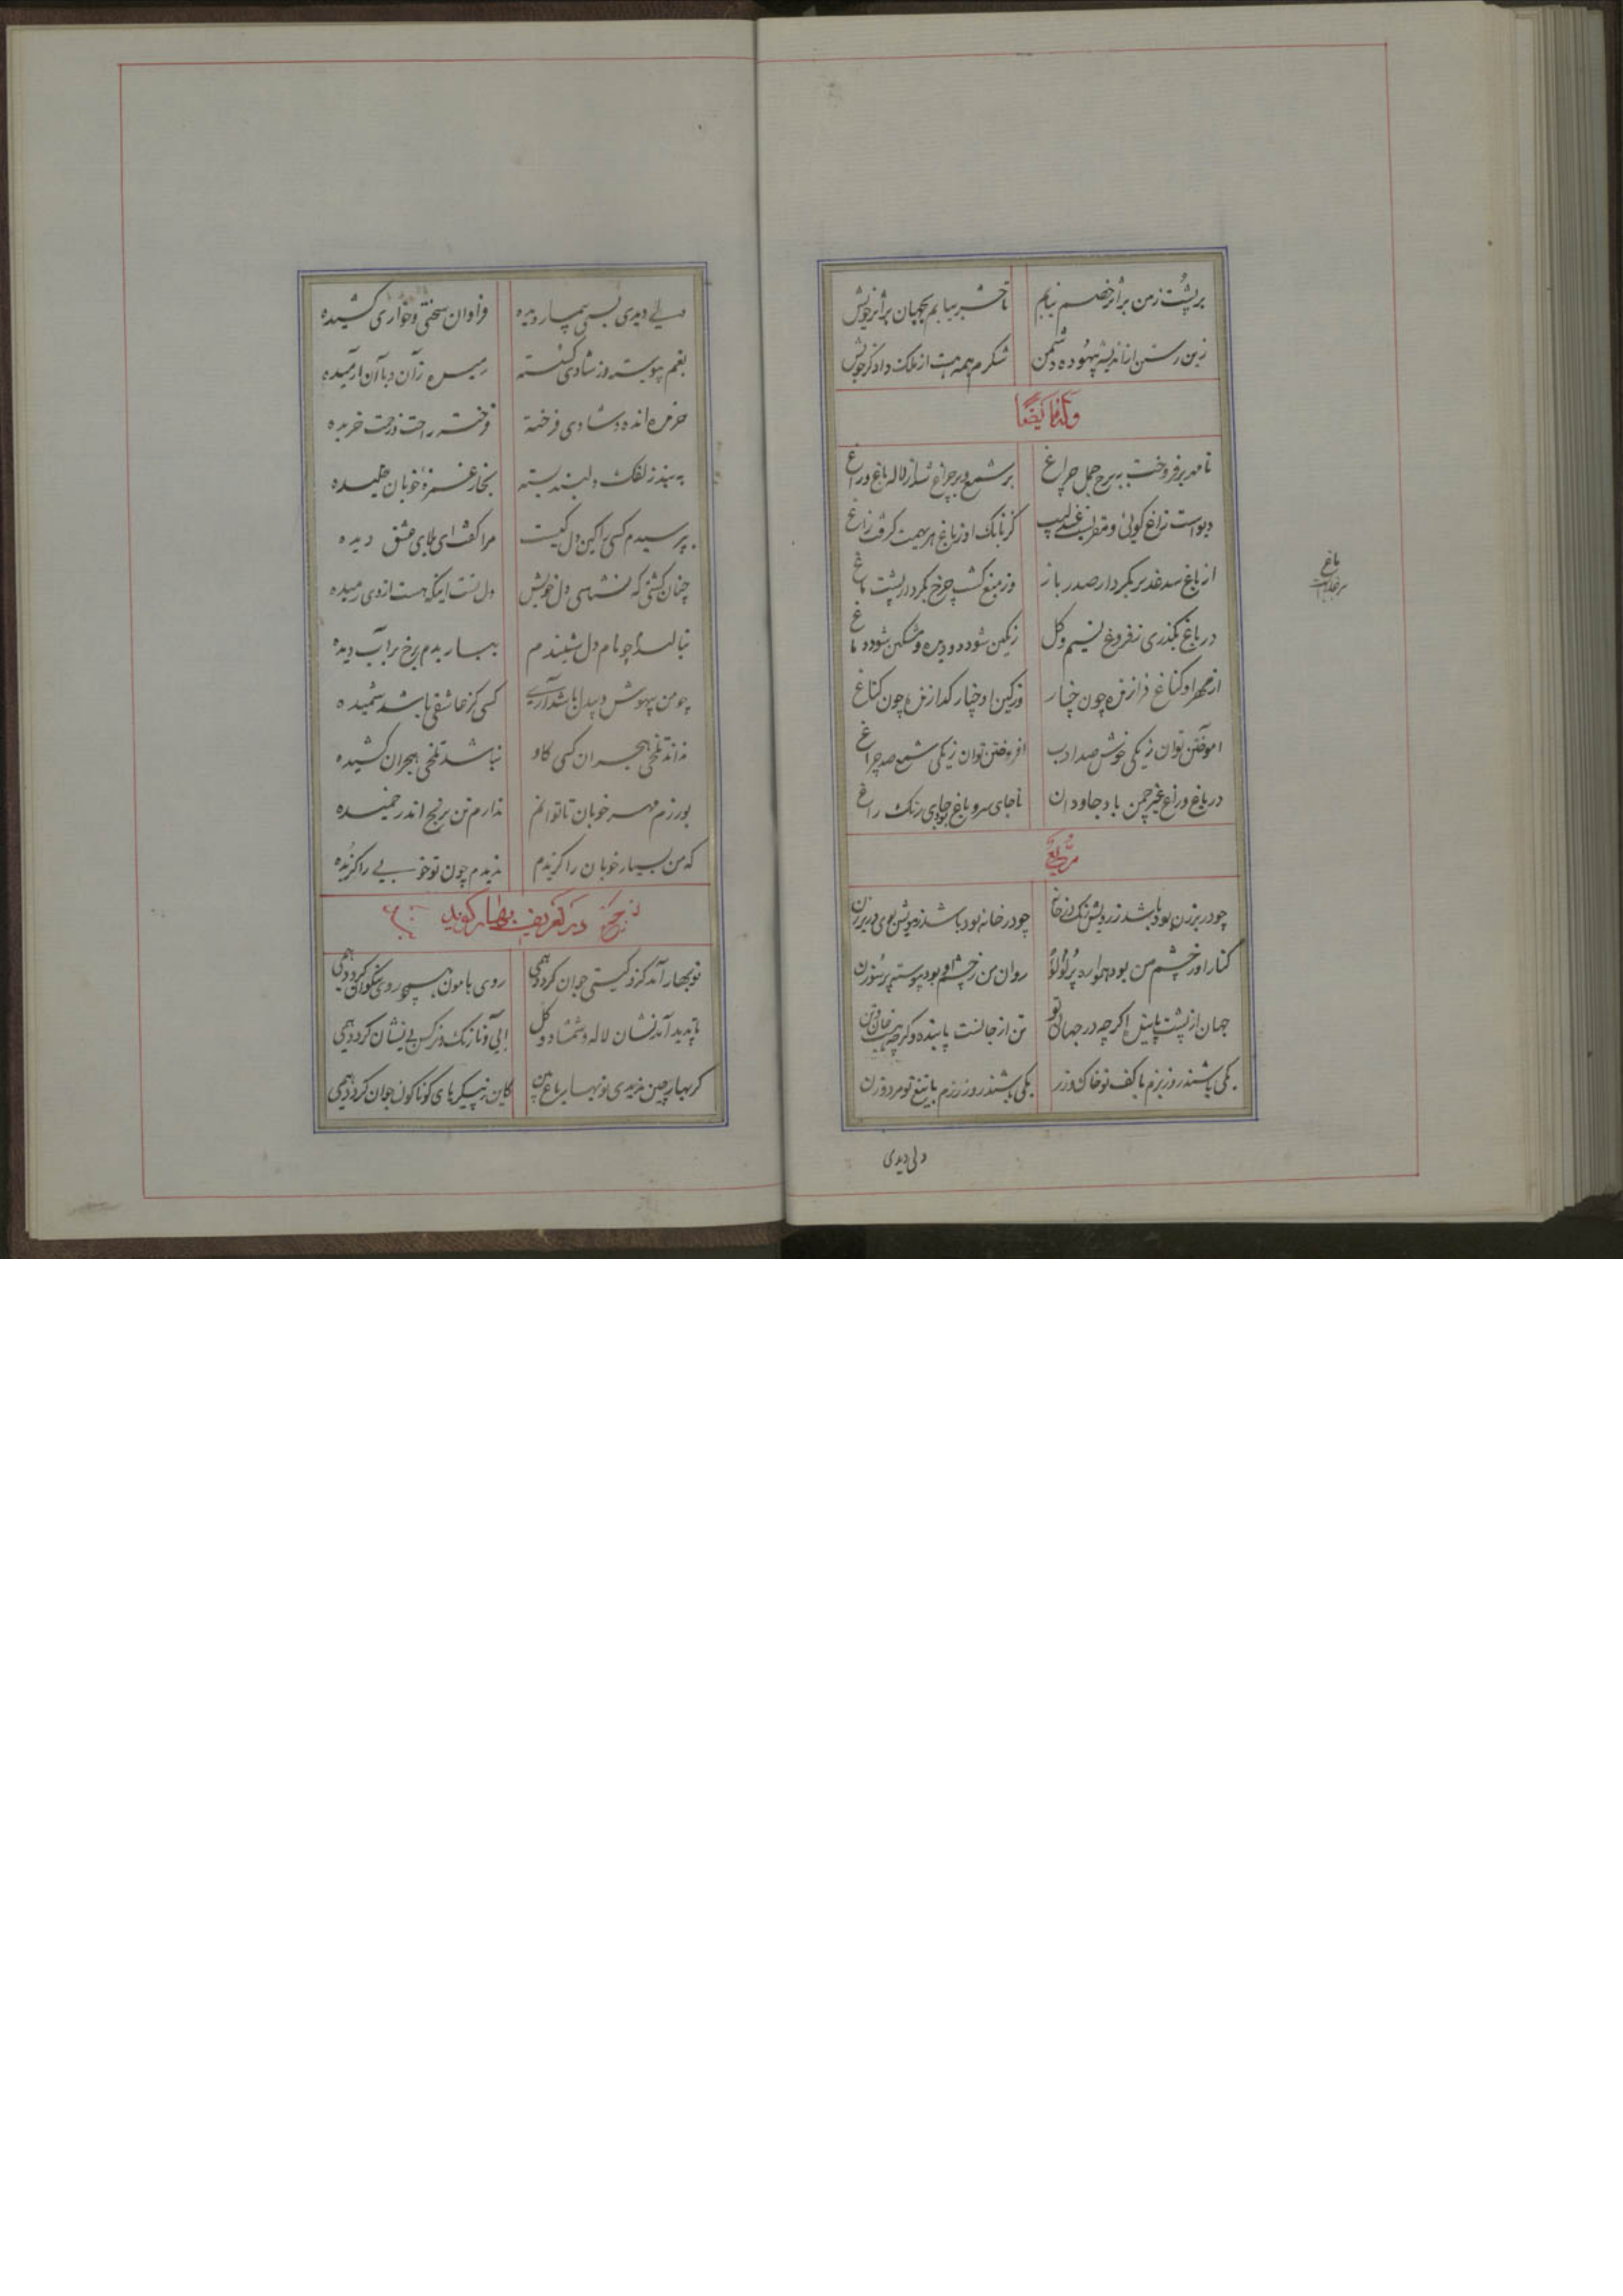 بر پشت زمن بر اثر خصم نیابم تا حشر بیابم بجهان بر اثر خویش
زین رستن از اندیشه بیهوده دشمن شکرم همه هست از ملک دادگر خویش
وله ایضا
تا مه برفروخت به برج حمل چراغ بر شمع و بر چراغ شد از لاله باغ و راغ
دیو است زاغ گوئی و مقرائست عندلیب کز بانک او ز باغ هزیمت گرفت زاغ
از باغ سد غدیر بکردار صدر باز وز میغ گشت چرخ بکردار پشت ماغ
در باغ بگذری ز فروغ نسیم و گل رنگین شودت دیده و مشکین شود دماغ
از مهر او کناغ فرازنده چون چنار وز کین او چنار گدازنده چون کناغ
آموختن توان ز یکی خوش صد ادب افروختن توان ز یکی شمع صد چراغ
در باغ و راغ چمن باد جاودان تا جای سرو باغ بود جای رنگ راغ
چو در برزن بود باشد ز رویش رنگ در خانه چو در خانه بود باشد ز مویش بوی در برزن
کنار او ز چشم من بود همواره پر لؤلؤ روان من ز چشم او بود پیوسته پر سوزن
جهان از پشت پاینده اگر چه در جهانی تو تن از جانست پاینده وگر چه هست جان در تن
یکی باشند روز بزم با کف تو خاک و زر یکی باشند روز رزم با تیغ تو مرد و زن
دلی دیدی
باغ
دلی دیدی بسی تیمار دیده فراوان سختی و خواری کشیده
بغم پیوسته وز شادی گسسته رمیده زان و با آن آرمیده
خریده انده و شادی فروخته فروخته راحت و زحمت خریده
به بند زلفک دلبند بسته بخار غمزه خوبان خلیده
بپرسیدم کسی را کین دل کیست مرا گفت ای بلای عشق دیده
چنان گشتی که نشناسی دل خویش دل تست اینکه هست از وی رمیده
بنالیدم چو نام دل شنیدم بباریدم برخ بر آب دیده
چو من بیهوش و بیدل باشد آری کسی کز عاشقی باشد شمیده
نداند تلخی هجران کسی کاو نباشد تلخی هجران کشیده
بورزم مهر خوبان تا توانم ندارم تن برنج اندر خمیده
که من بسیار خوبان را گزیدم ندیدم چون تو خوبی را گزیده
در تعریف بهار گوید
نوبهار آمد کزو گیتی جوان گردد همی روی هامون همچو روی نیکوان گردد همی
تا پدید آمد نشان لاله و شمشاد و گل آبی و نارنگ و نرگس بی نشان گردد همی
گر بهار چین ندیدی نوبهار باغ بین کاین ز پیکرهای گوناگون جوان گردد همی